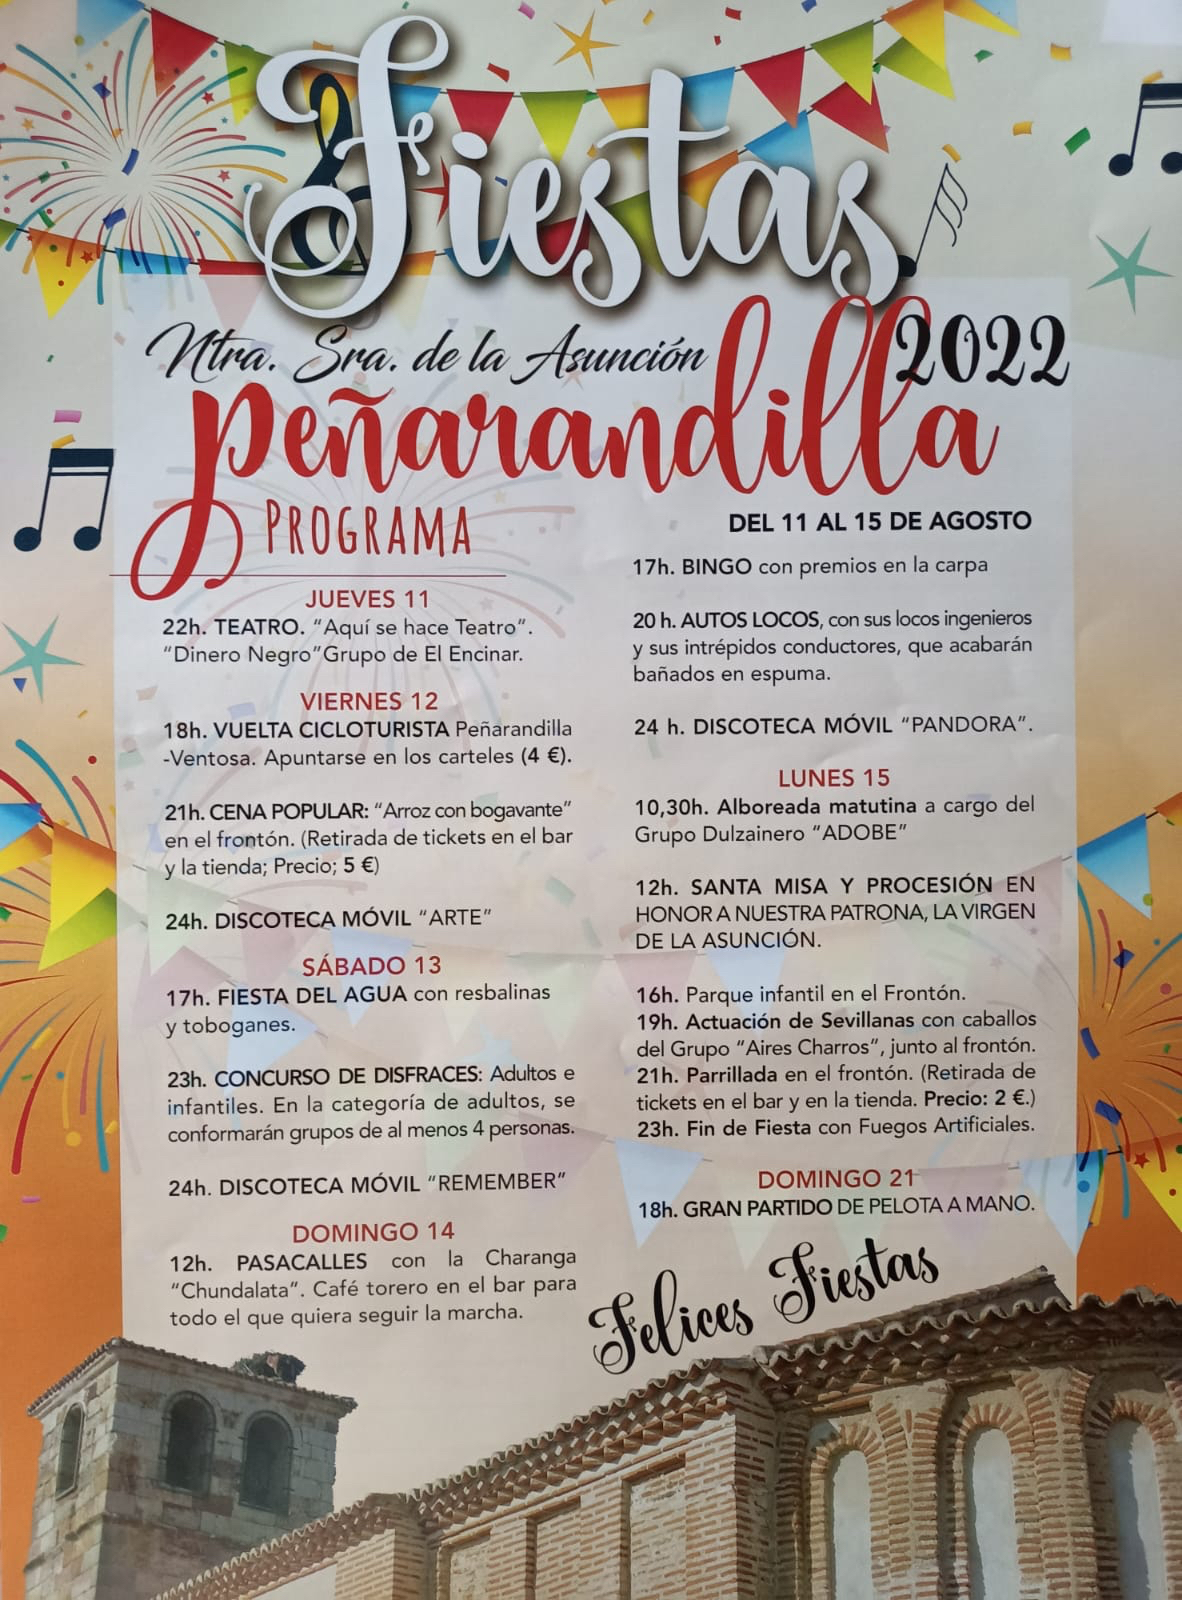 Fiestas
Ntra. Sra. de la Asunción
2022
Peñarandilla
PROGRAMA
JUEVES 11
22h. TEATRO. “Aquí se hace Teatro”.
“Dinero Negro”Grupo de El Encinar.
VIERNES 12
18h. VUELTA CICLOTURISTA Peñarandilla
-Ventosa. Apuntarse en los carteles (4 €).
21h. CENA POPULAR: “Arroz con bogavante”
en el frontón. (Retirada de tickets en el bar
y la tienda; Precio; 5 €)
24h. DISCOTECA MÓVIL “ARTE”
SÁBADO 13
17h. FIESTA DEL AGUA con resbalinas
y toboganes.
23h. CONCURSO DE DISFRACES: Adultos e
infantiles. En la categoría de adultos, se
conformarán grupos de al menos 4 personas.
24h. DISCOTECA MÓVIL “REMEMBER”
DOMINGO 14
12h. PASACALLES con la Charanga
“Chundalata”. Café torero en el bar para
todo el que quiera seguir la marcha.
DEL 11 AL 15 DE AGOSTO
17h. BINGO con premios en la carpa
20 h. AUTOS LOCOS, con sus locos ingenieros
y sus intrépidos conductores, que acabarán
bañados en espuma.
24 h. DISCOTECA MÓVIL “PANDORA”.
LUNES 15
10,30h. Alboreada matutina a cargo del
Grupo Dulzainero “ADOBE”
12h. SANTA MISA Y PROCESIÓN EN
HONOR A NUESTRA PATRONA, LA VIRGEN
DE LA ASUNCIÓN.
16h. Parque infantil en el Frontón.
19h. Actuación de Sevillanas con caballos
del Grupo “Aires Charros”, junto al frontón.
21h. Parrillada en el frontón. (Retirada de
tickets en el bar y en la tienda. Precio: 2 €.)
23h. Fin de Fiesta con Fuegos Artificiales.
DOMINGO 21
18h. GRAN PARTIDO DE PELOTA A MANO.
Felices Fiestas